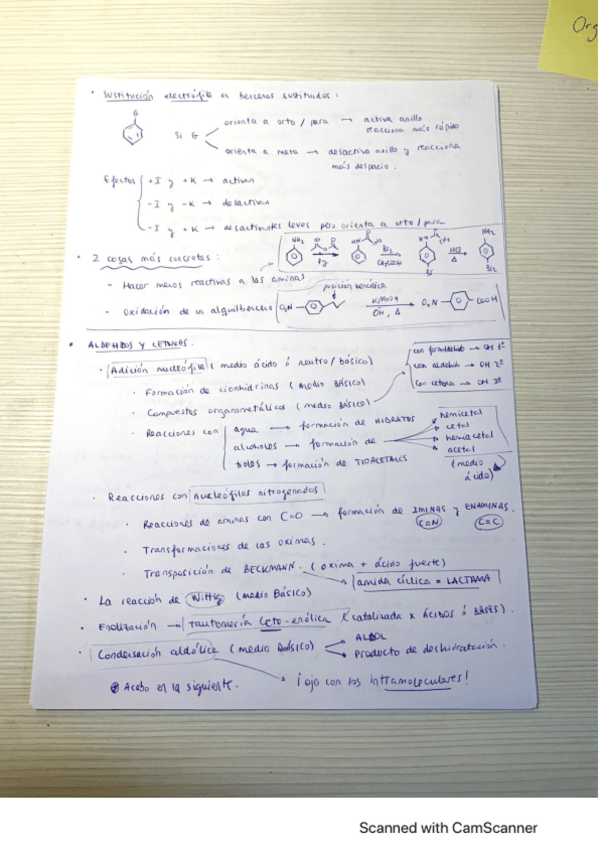 Org
• Sustitución electrófila en bencenos sustituidos:
G
Si G
orienta a orto / para → activa anillo
reacciona más rápido
orienta a meta → desactiva anillo y reacciona
más despacio.
Efectos
+I y +K → activan
-I y -K → desactivan
-I y +K → desactivantes leves pero orienta a orto/para
• 2 cosas más concretas:
- Hacer menos reactivas a las aminas
NH2
Py
Br2
CH3COOH
Br
HCl
Δ
NH2
Br
- Oxidación de un alquilbenceno
posición bencílica
O2N
KMnO4
OH, Δ
O2N
COOH
• ALDEHIDOS Y CETONAS.
• Adición nucleófila (medio ácido ó neutro/básico)
• Formación de cianhidrinas (medio BÁSICO)
• Compuestos organometálicos (medio BÁSICO)
con formaldehido → OH 1º
con aldehido → OH 2º
Con cetona → OH 3º
• Reacciones con
agua → formación de HIDRATOS
alcoholes → formación de
tioles → formación de TIOACETALES
hemicetal
cetal
hemiacetal
acetal
(medio
ácido)
• Reacciones con nucleófilos nitrogenados
• Reacciones de aminas con C=O → formación de IMINAS y ENAMINAS.
C=N
C=C
• Transformaciones de las oximas.
• Transposición de BECKMANN. (oxima + ácido fuerte)
amida cíclica = LACTAMA
• La reacción de Wittig (medio Básico)
• Enolización → tautomería ceto-enólica (catalizada x ÁCIDOS ó BASES).
• Condensación aldólica (medio BÁSICO)
ALDOL
Producto de deshidratación.
¡ojo con las intramoleculares!
Acabo en la siguiente.
Scanned with CamScanner